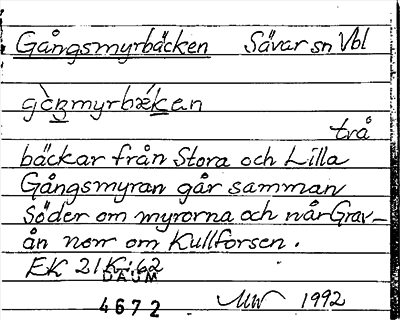 Gångsmyrbäcken Sävar sn Vbl
gɔ̀ŋsmyrbǽken
två
bäckar från Stora och Lilla
Gångsmyran går samman
söder om myrorna och når Grav-
ån norr om Kullforsen.
EK 21K:62
DAUM
4672 MW 1992